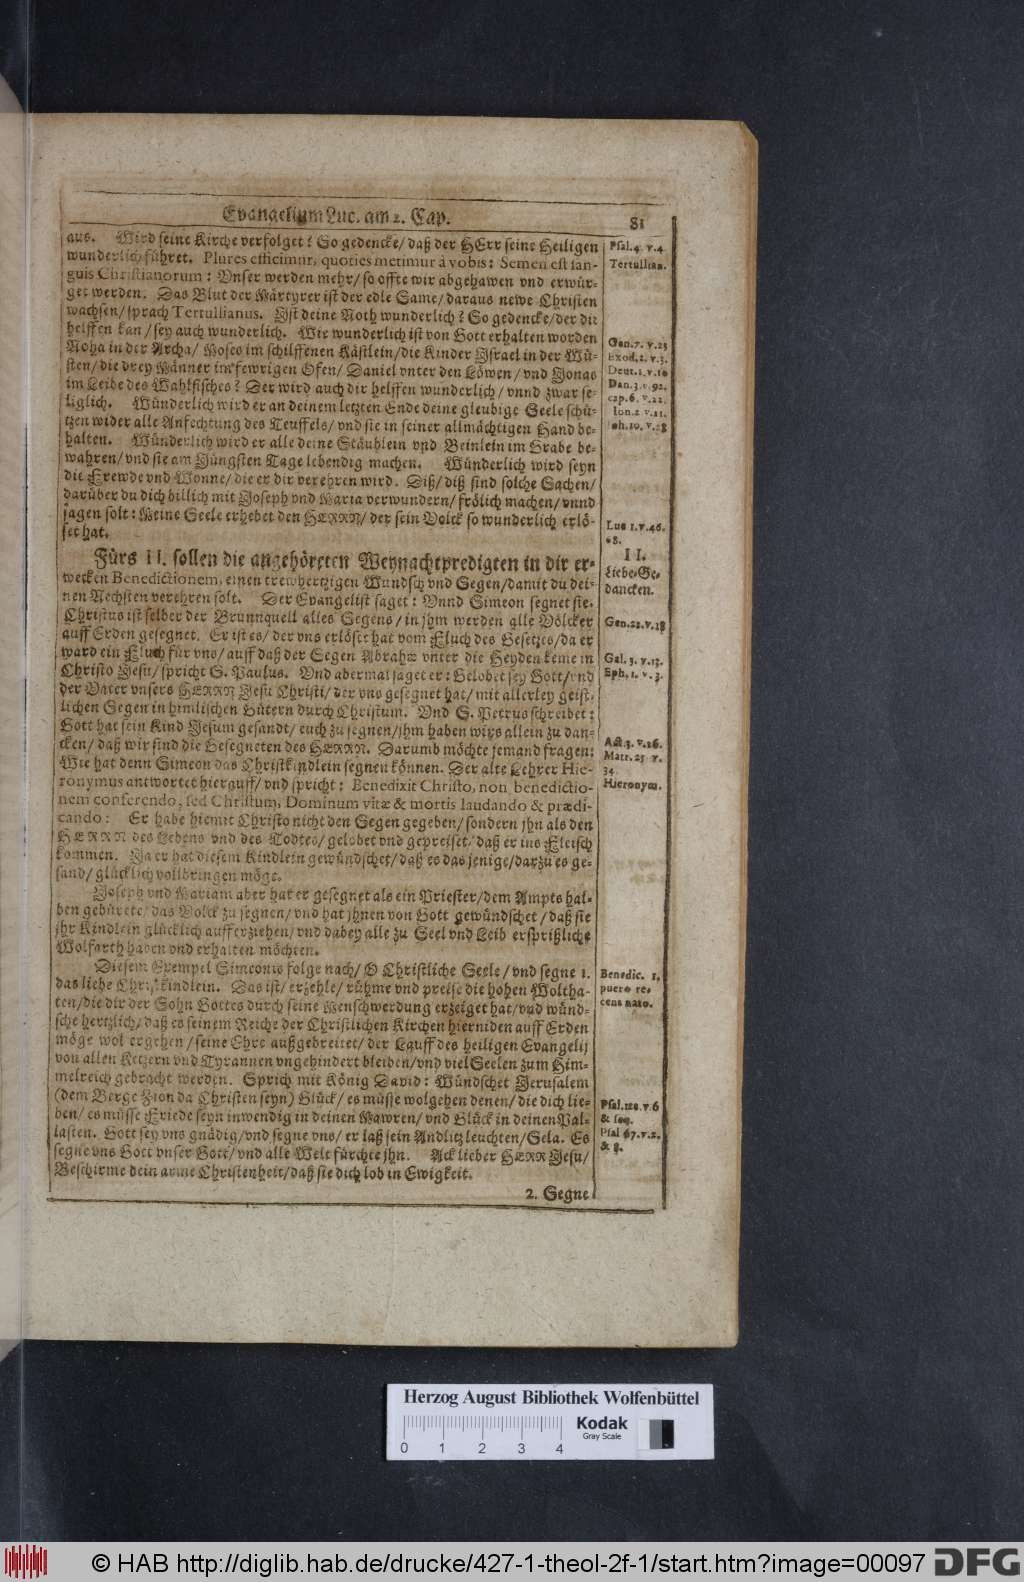 Evangelium Luc. am 2. Cap.
81
aus. Wird seine Kirche verfolget? So gedencke/ daß der HErr seine Heiligen
wunderlich führet. Plures efficimur, quoties metimur à vobis: Semen est san-
guis Christianorum: Vnser werden mehr/ so offte wir abgehawen vnd erwür-
get werden. Das Blut der Märtyrer ist der edle Same/ daraus newe Christen
wachsen/ sprach Tertullianus. Ist deine Noth wunderlich? So gedencke/ der dir
helffen kan/ sey auch wunderlich. Wie wunderlich ist von Gott erhalten worden
Noha in der Archa/ Moses im schilffenen Kästlein/ die Kinder Israel in der Wü-
sten/ die drey Männer im fewrigen Ofen/ Daniel vnter den Löwen/ vnd Jonas
im Leibe des Wahlfisches? Der wird auch dir helffen wunderlich/ vnnd zwar se-
liglich. Wünderlich wird er an deinem letzten Ende deine gleubige Seele schü-
tzen wider alle Anfechtung des Teuffels/ vnd sie in seiner allmächtigen Hand be-
halten. Wünderlich wird er alle deine Stäublein vnd Beinlein im Grabe be-
wahren/ vnd sie am Jüngsten Tage lebendig machen. Wünderlich wird seyn
die Frewde vnd Wonne/ die er dir verehren wird. Diß/ diß sind solche Sachen/
darüber du dich billich mit Joseph vnd Maria verwundern/ frölich machen/ vnnd
sagen solt: Meine Seele erhebet den HERRN/ der sein Volck so wunderlich erlö-
set hat.
Fürs II. sollen die angehöreten Weynachtpredigten in dir er-
wecken Benedictionem, einen trewhertzigen Wundsch vnd Segen/ damit du dei-
nen Nechsten verehren solt. Der Evangelist saget: Vnnd Simeon segnet sie.
Christus ist selber der Brunnquell alles Segens/ in jhm werden alle Völcker
auff Erden gesegnet. Er ist es/ der vns erlöset hat vom Fluch des Gesetzes/ da er
ward ein Fluch für vns/ auff daß der Segen Abrahæ vnter die Heyden keme in
Christo Jesu/ spricht S. Paulus. Vnd abermal saget er: Gelobet sey Gott/ vnd
der Vater vnsers HERRN Jesu Christi/ der vns gesegnet hat/ mit allerley geist-
lichen Segen in himlischen Gütern durch Christum. Vnd S. Petrus schreibet:
Gott hat sein Kind Jesum gesandt/ euch zu segnen/ jhm haben wirs allein zu dan-
cken/ daß wir sind die Gesegneten des HERRN. Darumb möchte jemand fragen:
Wie hat denn Simeon das Christkindlein segnen können. Der alte Lehrer Hie-
ronymus antwortet hierauff/ vnd spricht: Benedixit Christo, non benedictio-
nem conferendo, sed Christum, Dominum vitæ & mortis laudando & prædi-
cando: Er habe hiemit Christo nicht den Segen gegeben/ sondern jhn als den
HERRN des Lebens vnd des Todtes/ gelobet vnd gepreiset/ daß er ins Fleisch
kommen. Ja er hat diesem Kindlein gewündschet/ daß es das jenige/ darzu es ge-
sand/ glücklich vollbringen möge.
Joseph vnd Mariam aber hat er gesegnet als ein Priester/ dem Ampts hal-
ben gebürete/ das Volck zu segnen/ vnd hat jhnen von Gott gewündschet/ daß sie
jhr Kindlein glücklich aufferziehen/ vnd dabey alle zu Seel vnd Leib ersprißliche
Wolfarth haben vnd erhalten möchten.
Diesem Exempel Simeonis folge nach/ O Christliche Seele/ vnd segne 1.
das liebe Christkindlein. Das ist/ erzehle/ rühme vnd preise die hohen Woltha-
ten/ die dir der Sohn Gottes durch seine Menschwerdung erzeiget hat/ vnd wünd-
sche hertzlich/ daß es seinem Reiche der Christlichen Kirchen hierniden auff Erden
möge wol ergehen/ seine Ehre außgebreitet/ der Lauff des heiligen Evangelij
von allen Ketzern vnd Tyrannen vngehindert bleiben/ vnd viel Seelen zum Him-
melreich gebracht werden. Sprich mit König David: Wündschet Jerusalem
(dem Berge Zion da Christen seyn) Glück/ es müsse wolgehen denen/ die dich lie-
ben/ es müsse Friede seyn inwendig in deinen Mawren/ vnd Glück in deinen Pal-
lasten. Gott sey vns gnädig/ vnd segne vns/ er laß sein Andlitz leuchten/ Sela. Es
segne vns Gott vnser Gott/ vnd alle Welt fürchte jhn. Ach lieber HERR Jesu/
Beschirme dein arme Christenheit/ daß sie dich lob in Ewigkeit.
2. Segne
Psal. 4. v. 4.
Tertullian.
Gen. 7. v. 23
Exod. 2. v. 3.
Deut. 1. v. 10
Dan. 3. v. 92.
cap. 6. v. 22.
Ion. 2 v. 11.
Joh. 10. v. 28
Luc 1. v. 46.
68.
II.
Liebe-Ge-
dancken.
Gen. 22. v. 18
Gal. 3. v. 13.
Eph. 1. v. 3.
Act. 3. v. 26.
Matt. 25 v.
34.
Hieronym.
Benedic. 1.
puero re-
cens nato.
Psal. 122. v. 6
& seq.
Psal 67. v. 2.
& 8.
Herzog August Bibliothek Wolfenbüttel
Kodak
Gray Scale
0 1 2 3 4
© HAB http://diglib.hab.de/drucke/427-1-theol-2f-1/start.htm?image=00097
DFG